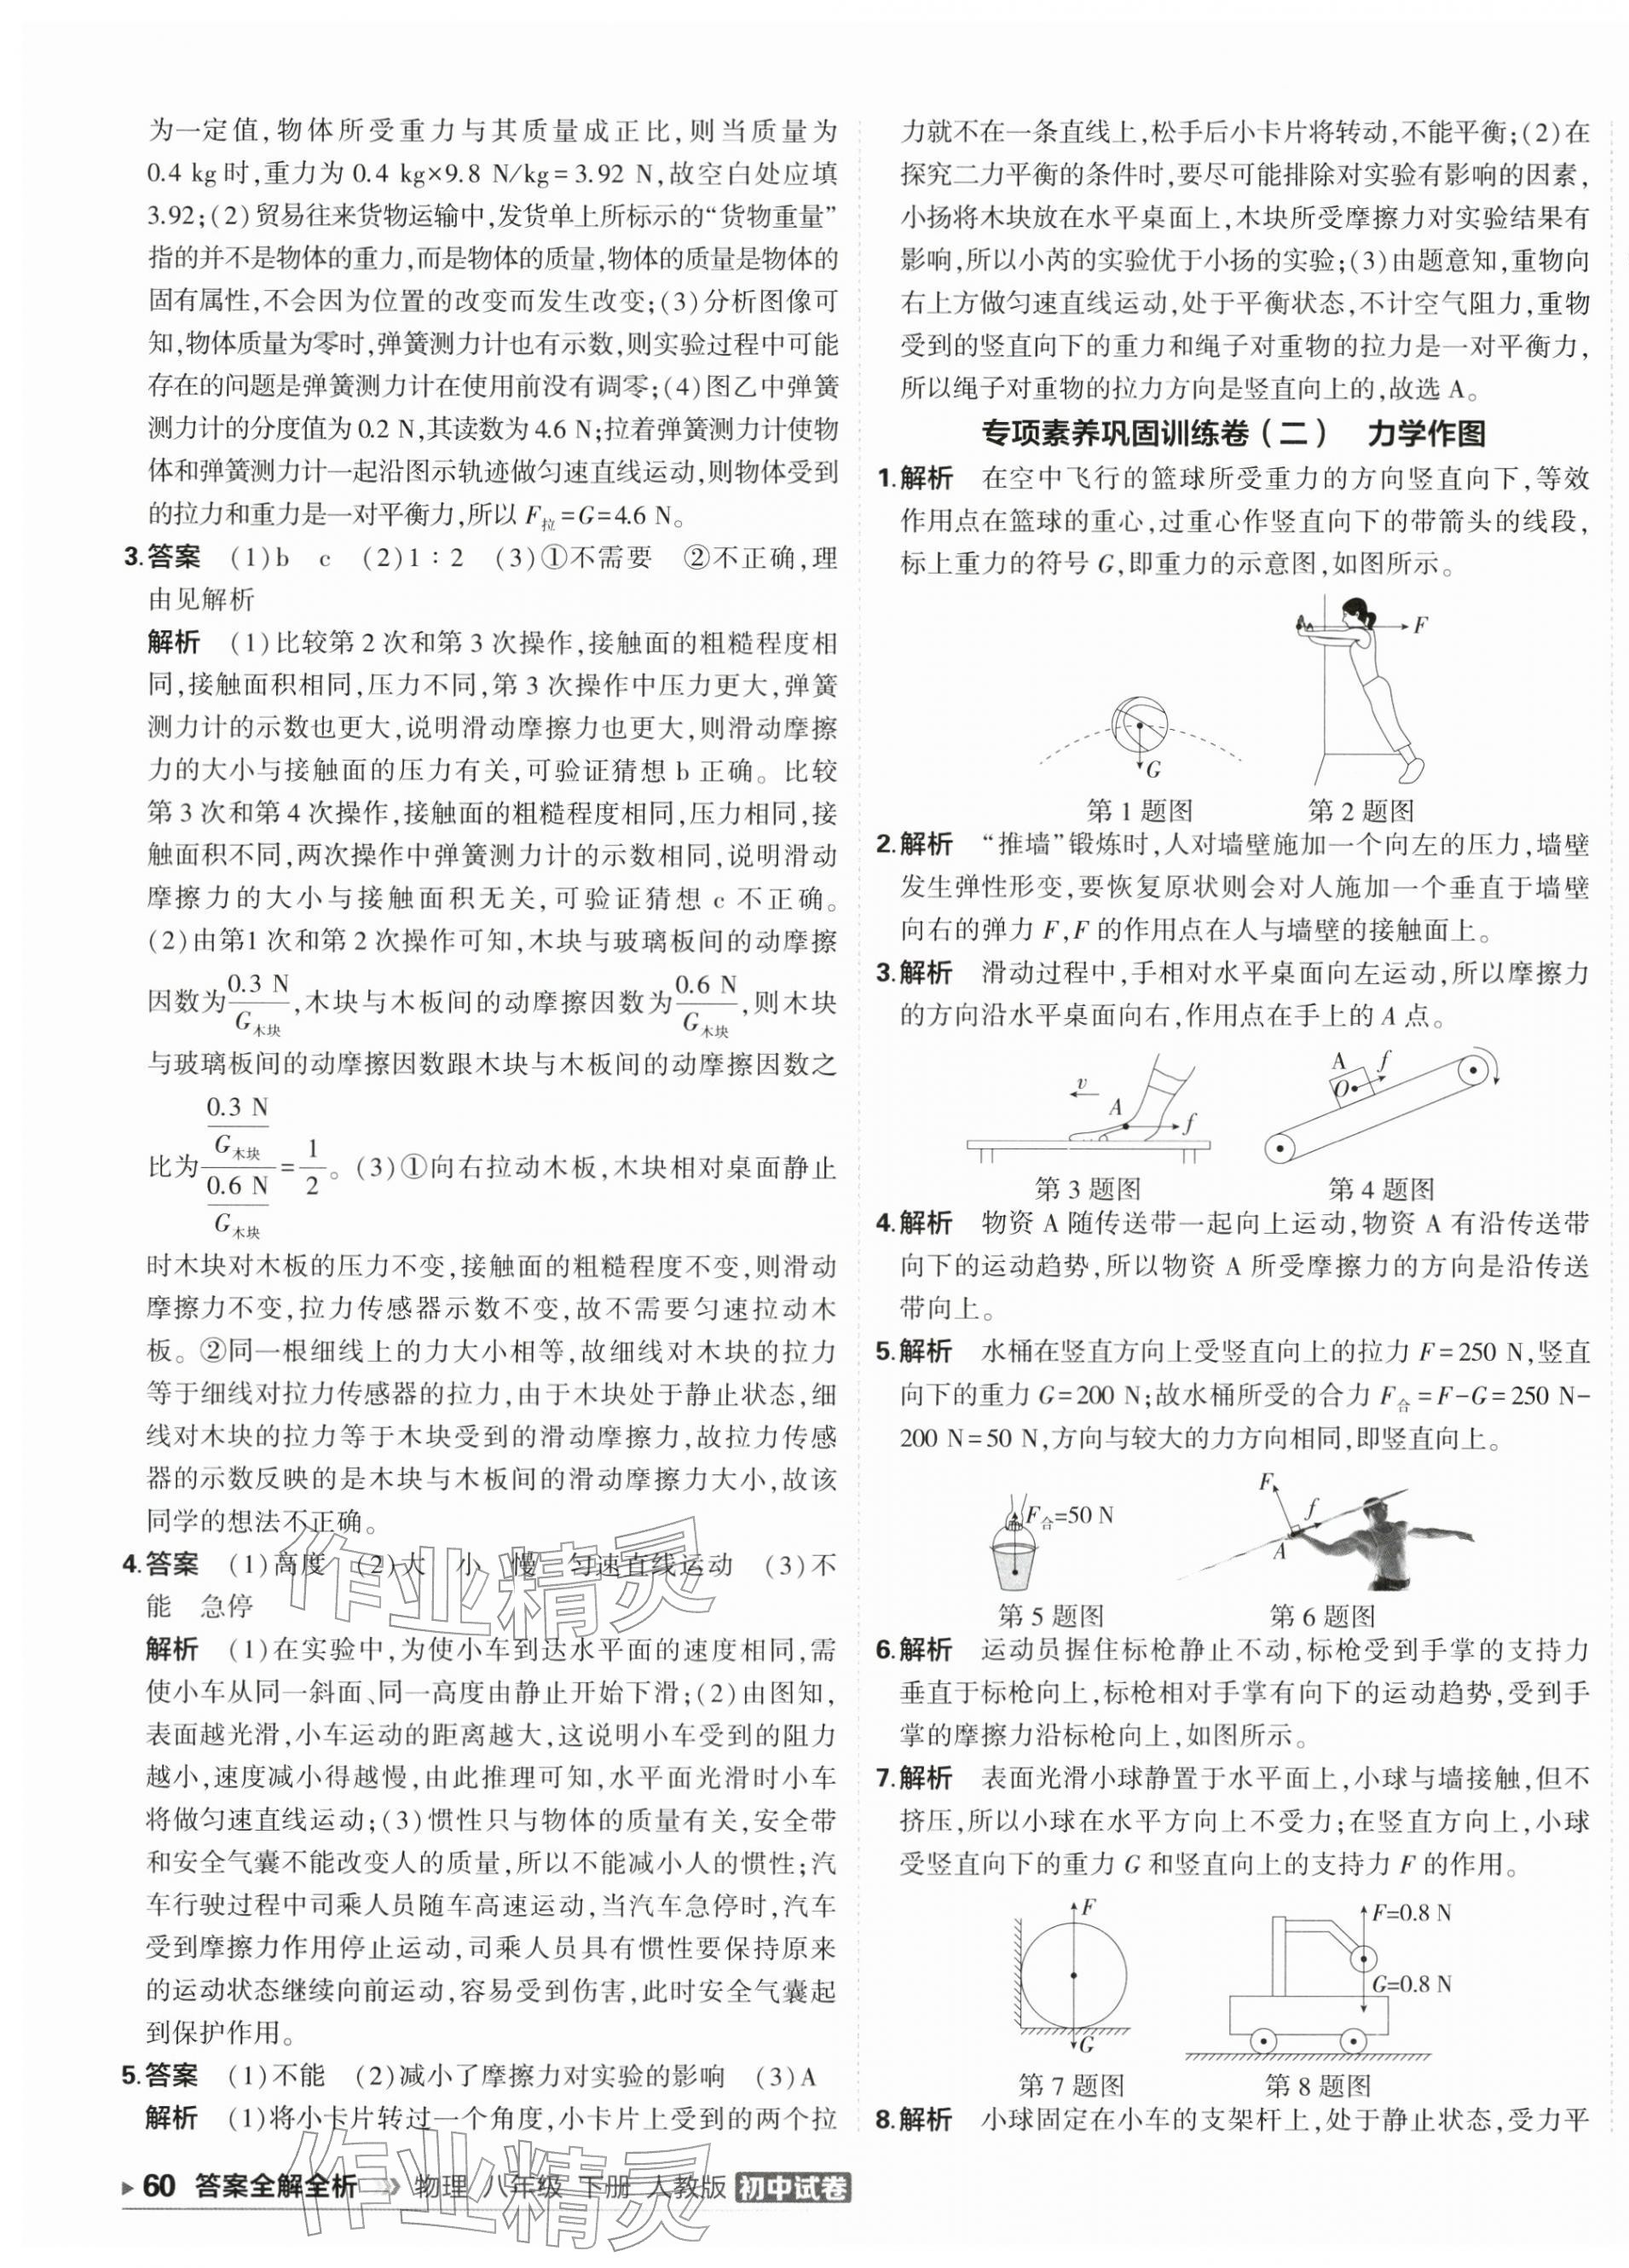 为一定值,物体所受重力与其质量成正比,则当质量为
0.4 kg时,重力为0.4 kg×9.8 N/kg=3.92 N,故空白处应填
3.92;(2)贸易往来货物运输中,发货单上所标示的“货物重量”
指的并不是物体的重力,而是物体的质量,物体的质量是物体的
固有属性,不会因为位置的改变而发生改变;(3)分析图像可
知,物体质量为零时,弹簧测力计也有示数,则实验过程中可能
存在的问题是弹簧测力计在使用前没有调零;(4)图乙中弹簧
测力计的分度值为0.2 N,其读数为4.6 N;拉着弹簧测力计使物
体和弹簧测力计一起沿图示轨迹做匀速直线运动,则物体受到
的拉力和重力是一对平衡力,所以F拉=G=4.6 N。
3.答案 (1)b c (2)1∶2 (3)①不需要 ②不正确,理
由见解析
解析 (1)比较第2次和第3次操作,接触面的粗糙程度相
同,接触面积相同,压力不同,第3次操作中压力更大,弹簧
测力计的示数也更大,说明滑动摩擦力也更大,则滑动摩擦
力的大小与接触面的压力有关,可验证猜想b正确。比较
第3次和第4次操作,接触面的粗糙程度相同,压力相同,接
触面积不同,两次操作中弹簧测力计的示数相同,说明滑动
摩擦力的大小与接触面积无关,可验证猜想c不正确。
(2)由第1次和第2次操作可知,木块与玻璃板间的动摩擦
因数为0.3 N/G木块,木块与木板间的动摩擦因数为0.6 N/G木块,则木块
与玻璃板间的动摩擦因数跟木块与木板间的动摩擦因数之
比为(0.3 N/G木块)/(0.6 N/G木块)=1/2。(3)①向右拉动木板,木块相对桌面静止
时木块对木板的压力不变,接触面的粗糙程度不变,则滑动
摩擦力不变,拉力传感器示数不变,故不需要匀速拉动木
板。②同一根细线上的力大小相等,故细线对木块的拉力
等于细线对拉力传感器的拉力,由于木块处于静止状态,细
线对木块的拉力等于木块受到的滑动摩擦力,故拉力传感
器的示数反映的是木块与木板间的滑动摩擦力大小,故该
同学的想法不正确。
4.答案 (1)高度 (2)大 小 慢 匀速直线运动 (3)不
能 急停
解析 (1)在实验中,为使小车到达水平面的速度相同,需
使小车从同一斜面、同一高度由静止开始下滑;(2)由图知,
表面越光滑,小车运动的距离越大,这说明小车受到的阻力
越小,速度减小得越慢,由此推理可知,水平面光滑时小车
将做匀速直线运动;(3)惯性只与物体的质量有关,安全带
和安全气囊不能改变人的质量,所以不能减小人的惯性;汽
车行驶过程中司乘人员随车高速运动,当汽车急停时,汽车
受到摩擦力作用停止运动,司乘人员具有惯性要保持原来
的运动状态继续向前运动,容易受到伤害,此时安全气囊起
到保护作用。
5.答案 (1)不能 (2)减小了摩擦力对实验的影响 (3)A
解析 (1)将小卡片转过一个角度,小卡片上受到的两个拉
力就不在一条直线上,松手后小卡片将转动,不能平衡;(2)在
探究二力平衡的条件时,要尽可能排除对实验有影响的因素,
小扬将木块放在水平桌面上,木块所受摩擦力对实验结果有
影响,所以小芮的实验优于小扬的实验;(3)由题意知,重物向
右上方做匀速直线运动,处于平衡状态,不计空气阻力,重物
受到的竖直向下的重力和绳子对重物的拉力是一对平衡力,
所以绳子对重物的拉力方向是竖直向上的,故选A。
专项素养巩固训练卷(二) 力学作图
1.解析 在空中飞行的篮球所受重力的方向竖直向下,等效
作用点在篮球的重心,过重心作竖直向下的带箭头的线段,
标上重力的符号G,即重力的示意图,如图所示。
F
G
第1题图 第2题图
2.解析 “推墙”锻炼时,人对墙壁施加一个向左的压力,墙壁
发生弹性形变,要恢复原状则会对人施加一个垂直于墙壁
向右的弹力F,F的作用点在人与墙壁的接触面上。
3.解析 滑动过程中,手相对水平桌面向左运动,所以摩擦力
的方向沿水平桌面向右,作用点在手上的A点。
v A f A f O
第3题图 第4题图
4.解析 物资A随传送带一起向上运动,物资A有沿传送带
向下的运动趋势,所以物资A所受摩擦力的方向是沿传送
带向上。
5.解析 水桶在竖直方向上受竖直向上的拉力F=250 N,竖直
向下的重力G=200 N;故水桶所受的合力F合=F-G=250 N-
200 N=50 N,方向与较大的力方向相同,即竖直向上。
F合=50 N F f A
第5题图 第6题图
6.解析 运动员握住标枪静止不动,标枪受到手掌的支持力
垂直于标枪向上,标枪相对手掌有向下的运动趋势,受到手
掌的摩擦力沿标枪向上,如图所示。
7.解析 表面光滑小球静置于水平面上,小球与墙接触,但不
挤压,所以小球在水平方向上不受力;在竖直方向上,小球
受竖直向下的重力G和竖直向上的支持力F的作用。
F F=0.8 N
G G=0.8 N
第7题图 第8题图
8.解析 小球固定在小车的支架杆上,处于静止状态,受力平
60 答案全解全析 物理 八年级 下册 人教版 初中试卷
作业精灵
作业精灵